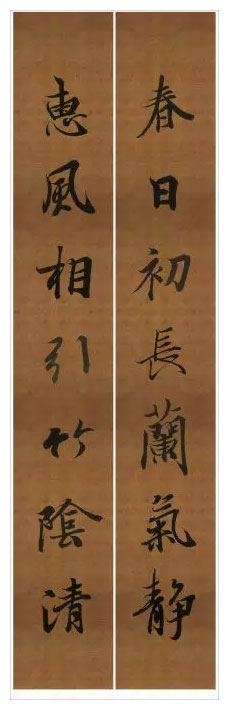 春日初長蘭氣静
惠風相引竹陰清